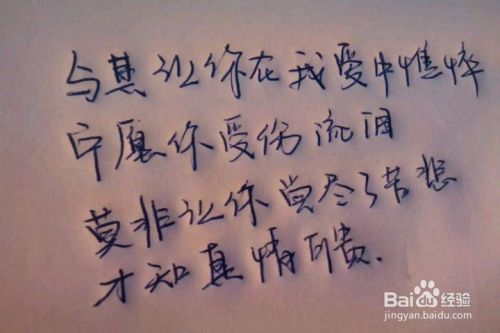 与其让你在我爱中憔悴
宁愿你受伤流泪
莫非让你尝尽了苦悲
才知真情可贵.
Baidu经验
jingyan.baidu.com